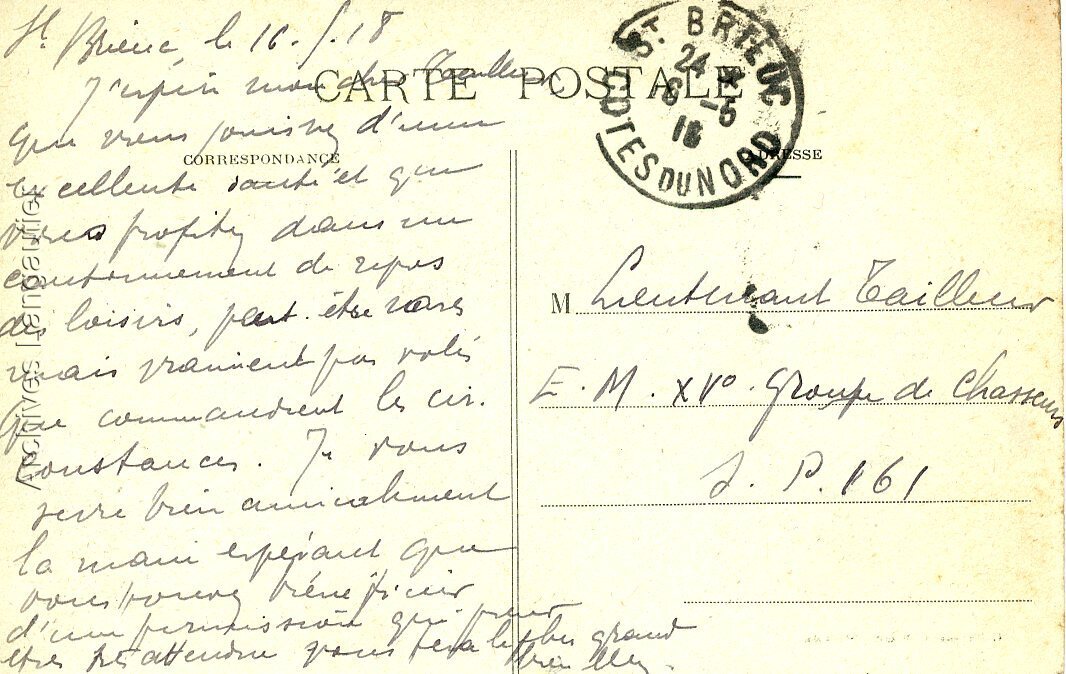 St Brieuc le 16.5.18
CARTE POSTALE
ST. BRIEUC
24
6 -5
18
COTES DU NORD
CORRESPONDANCE
ADRESSE
J'espère mon cher Tailleur
que vous jouissez d'une
excellente santé et que
vous profitez dans un
cantonnement de repos
des loisirs, peut être rares
mais vraiment pas volés
que commandent les cir.
constances. Je vous
serre bien amicalement
la main espérant que
vous pourrez bénéficier
d'une permission qui
être attendre vous fera le plus grand
M Lieutenant Tailleur
E. M. XVº Groupe de Chasseurs
S. P. 161
Archives